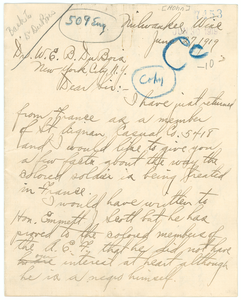 509 Eng
Milwaukee Wisc
June 1919
Dr. W. E. B. DuBois
New York City N.Y.
Copy
Dear Sir:-
I have just returned
from France as a member
of St. Aignan, Casual Co. 5418
and I would like to give you
a few facts about the way the
colored soldier is being treated
in France.
I would have written to
Hon. Emmett J. Scott but he has
proved to the colored members of
the A. E. F. that he did not have
interest at heart although
he is a negro himself.